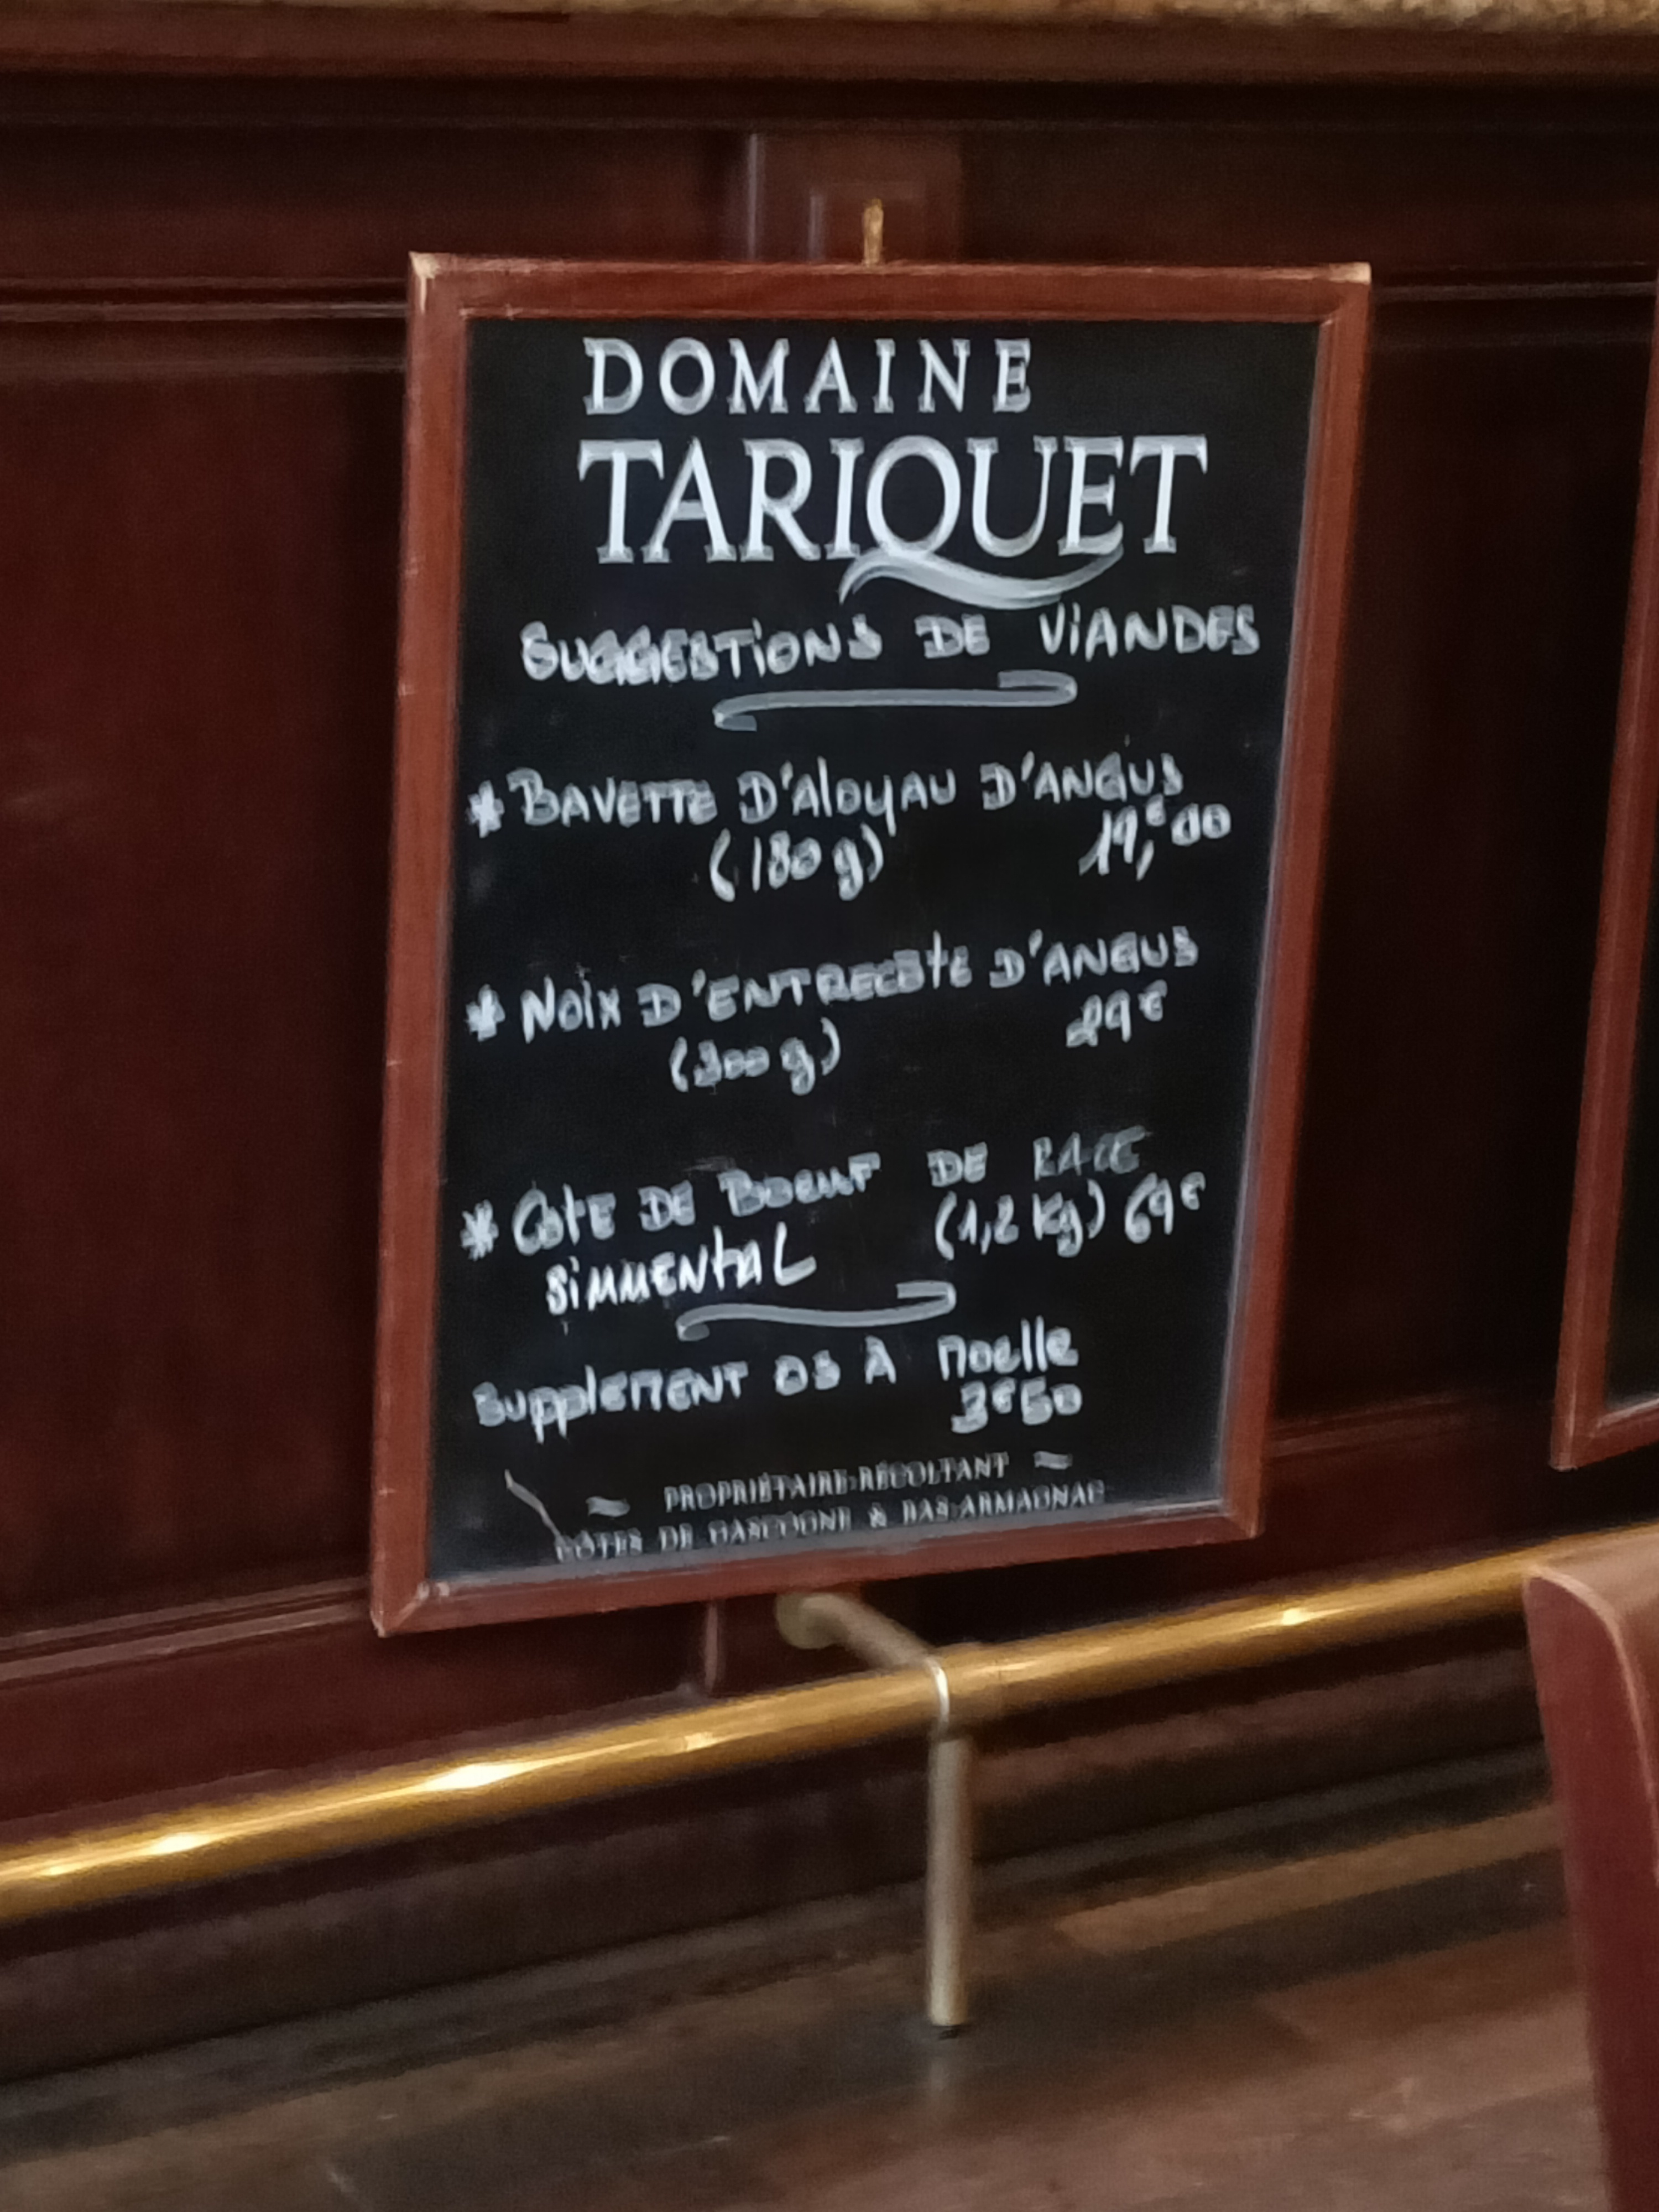 DOMAINE
TARIQUET
SUGGESTIONS DE VIANDES
* BAVETTE D'AlOyAU D'ANGUS
(180 g) 19,€00
* NOix D'ENTRECôtE D'ANGUS
(300 g) 29€
* CôtE DE BOEUF DE RACE
(1,2 Kg) 69€
SiMMENtAL
SupplEMENT OS À Moelle
3€50
PROPRIÉTAIRE-RÉCOLTANT
CÔTES DE GASCOGNE & BAS-ARMAGNAC